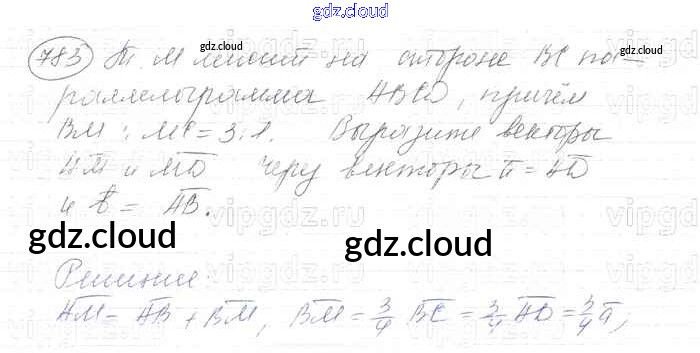 gdz.cloud
783 Т. М лежит на стороне ВС па-
раллелограмма ABCD, причём
ВМ : МС = 3:1. Выразите векторы
АМ и MD через векторы a = AD
и b = AB.
gdz.cloud
gdz.cloud
gdz.cloud
Решение:
AM = AB + BM, BM = 3/4 BC = 3/4 AD = 3/4 a;